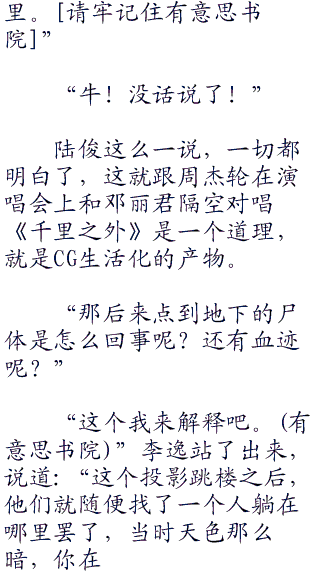 里。[请牢记住有意思书
院]”
“牛！没话说了！”
陆俊这么一说，一切都
明白了，这就跟周杰轮在演
唱会上和邓丽君隔空对唱
《千里之外》是一个道理，
就是CG生活化的产物。
“那后来点到地下的尸
体是怎么回事呢？还有血迹
呢？”
“这个我来解释吧。(有
意思书院)”李逸站了出来，
说道：“这个投影跳楼之后，
他们就随便找了一个人躺在
哪里罢了，当时天色那么
暗，你在